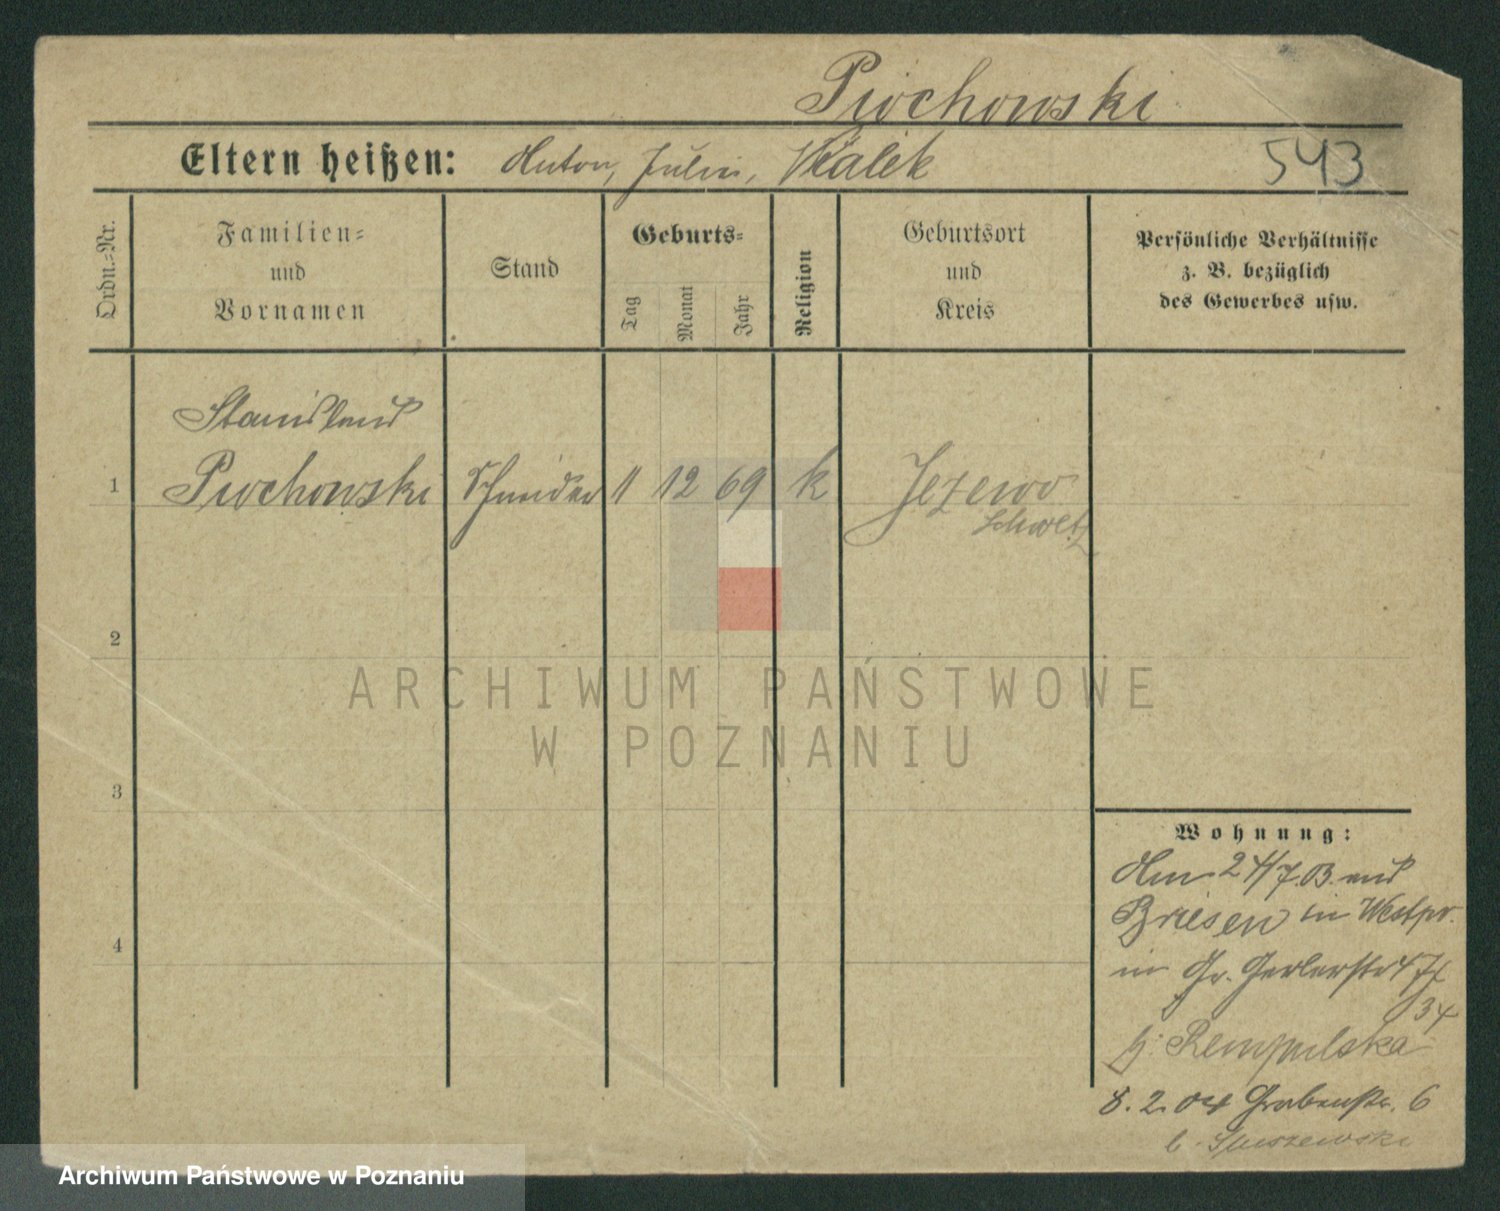 Piochowski
Eltern heißen: Anton, Julie, Walek
543
Ordn.-Nr.
Familien-
und
Vornamen
Stand
Geburts-
Tag
Monat
Jahr
Religion
Geburtsort
und
Kreis
Persönliche Verhältnisse
z. B. bezüglich
des Gewerbes usw.
Stanislaus
1 Piochowski Schneider 11 12 69 k Jezewo
Schwetz
2
3
4
ARCHIWUM PAŃSTWOWE
W POZNANIU
Wohnung:
Am 24/7.03. aus
Briesen in Westpr.
in Gr. Gerberstr 47
34
b:
8. 2. 04 Grabenstr. 6
b.
Archiwum Państwowe w Poznaniu